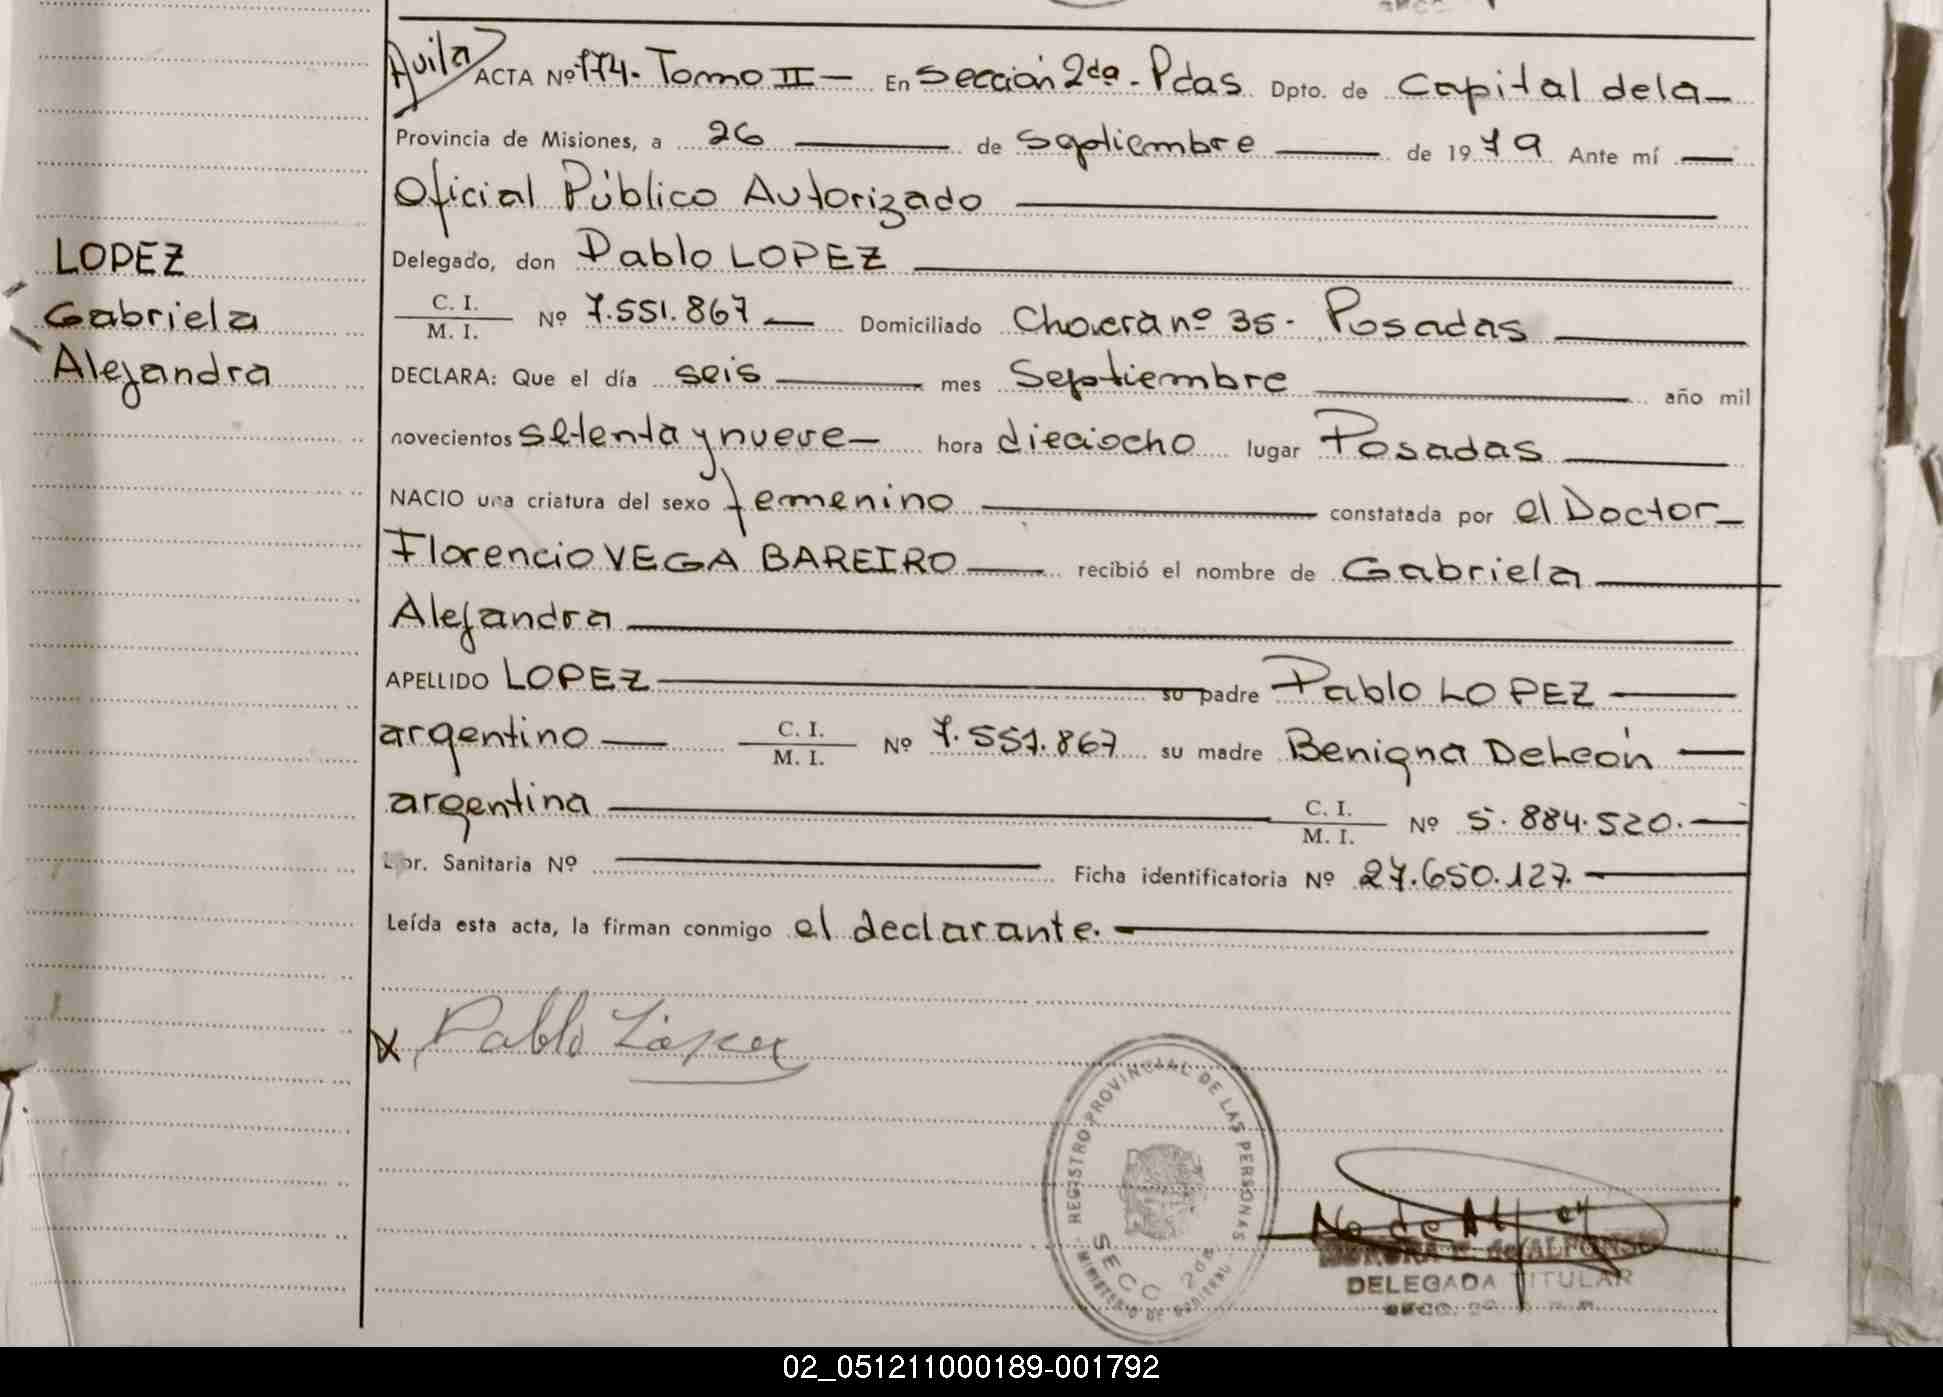 Avila
ACTA Nº 174. Tomo II — En Sección 2da - Pdas. Dpto. de Capital de la
Provincia de Misiones, a 26 de Septiembre de 1979 Ante mí
Oficial Público Autorizado
LOPEZ
Gabriela
Alejandra
Delegado, don Pablo LOPEZ
C. I.
M. I. Nº 7.551.867 Domiciliado nº 35 - Posadas
DECLARA: Que el día seis mes Septiembre año mil
novecientos setenta y nueve hora dieciocho lugar Posadas
NACIO una criatura del sexo femenino constatada por el Doctor
Florencio VEGA BAREIRO recibió el nombre de Gabriela
Alejandra
APELLIDO LOPEZ su padre Pablo LOPEZ
argentino C. I.
M. I. Nº 7.551.867 su madre Benigna DeLeón
argentina C. I.
M. I. Nº 5.884.520.
Sanitaria Nº Ficha identificatoria Nº 27.650.127.
Leída esta acta, la firman conmigo el declarante.
X Pablo López
REGISTRO PROVINCIAL DE LAS PERSONAS
MINISTERIO DE
SECC 2da
de ALFONSO
DELEGADA TITULAR
02_051211000189-001792